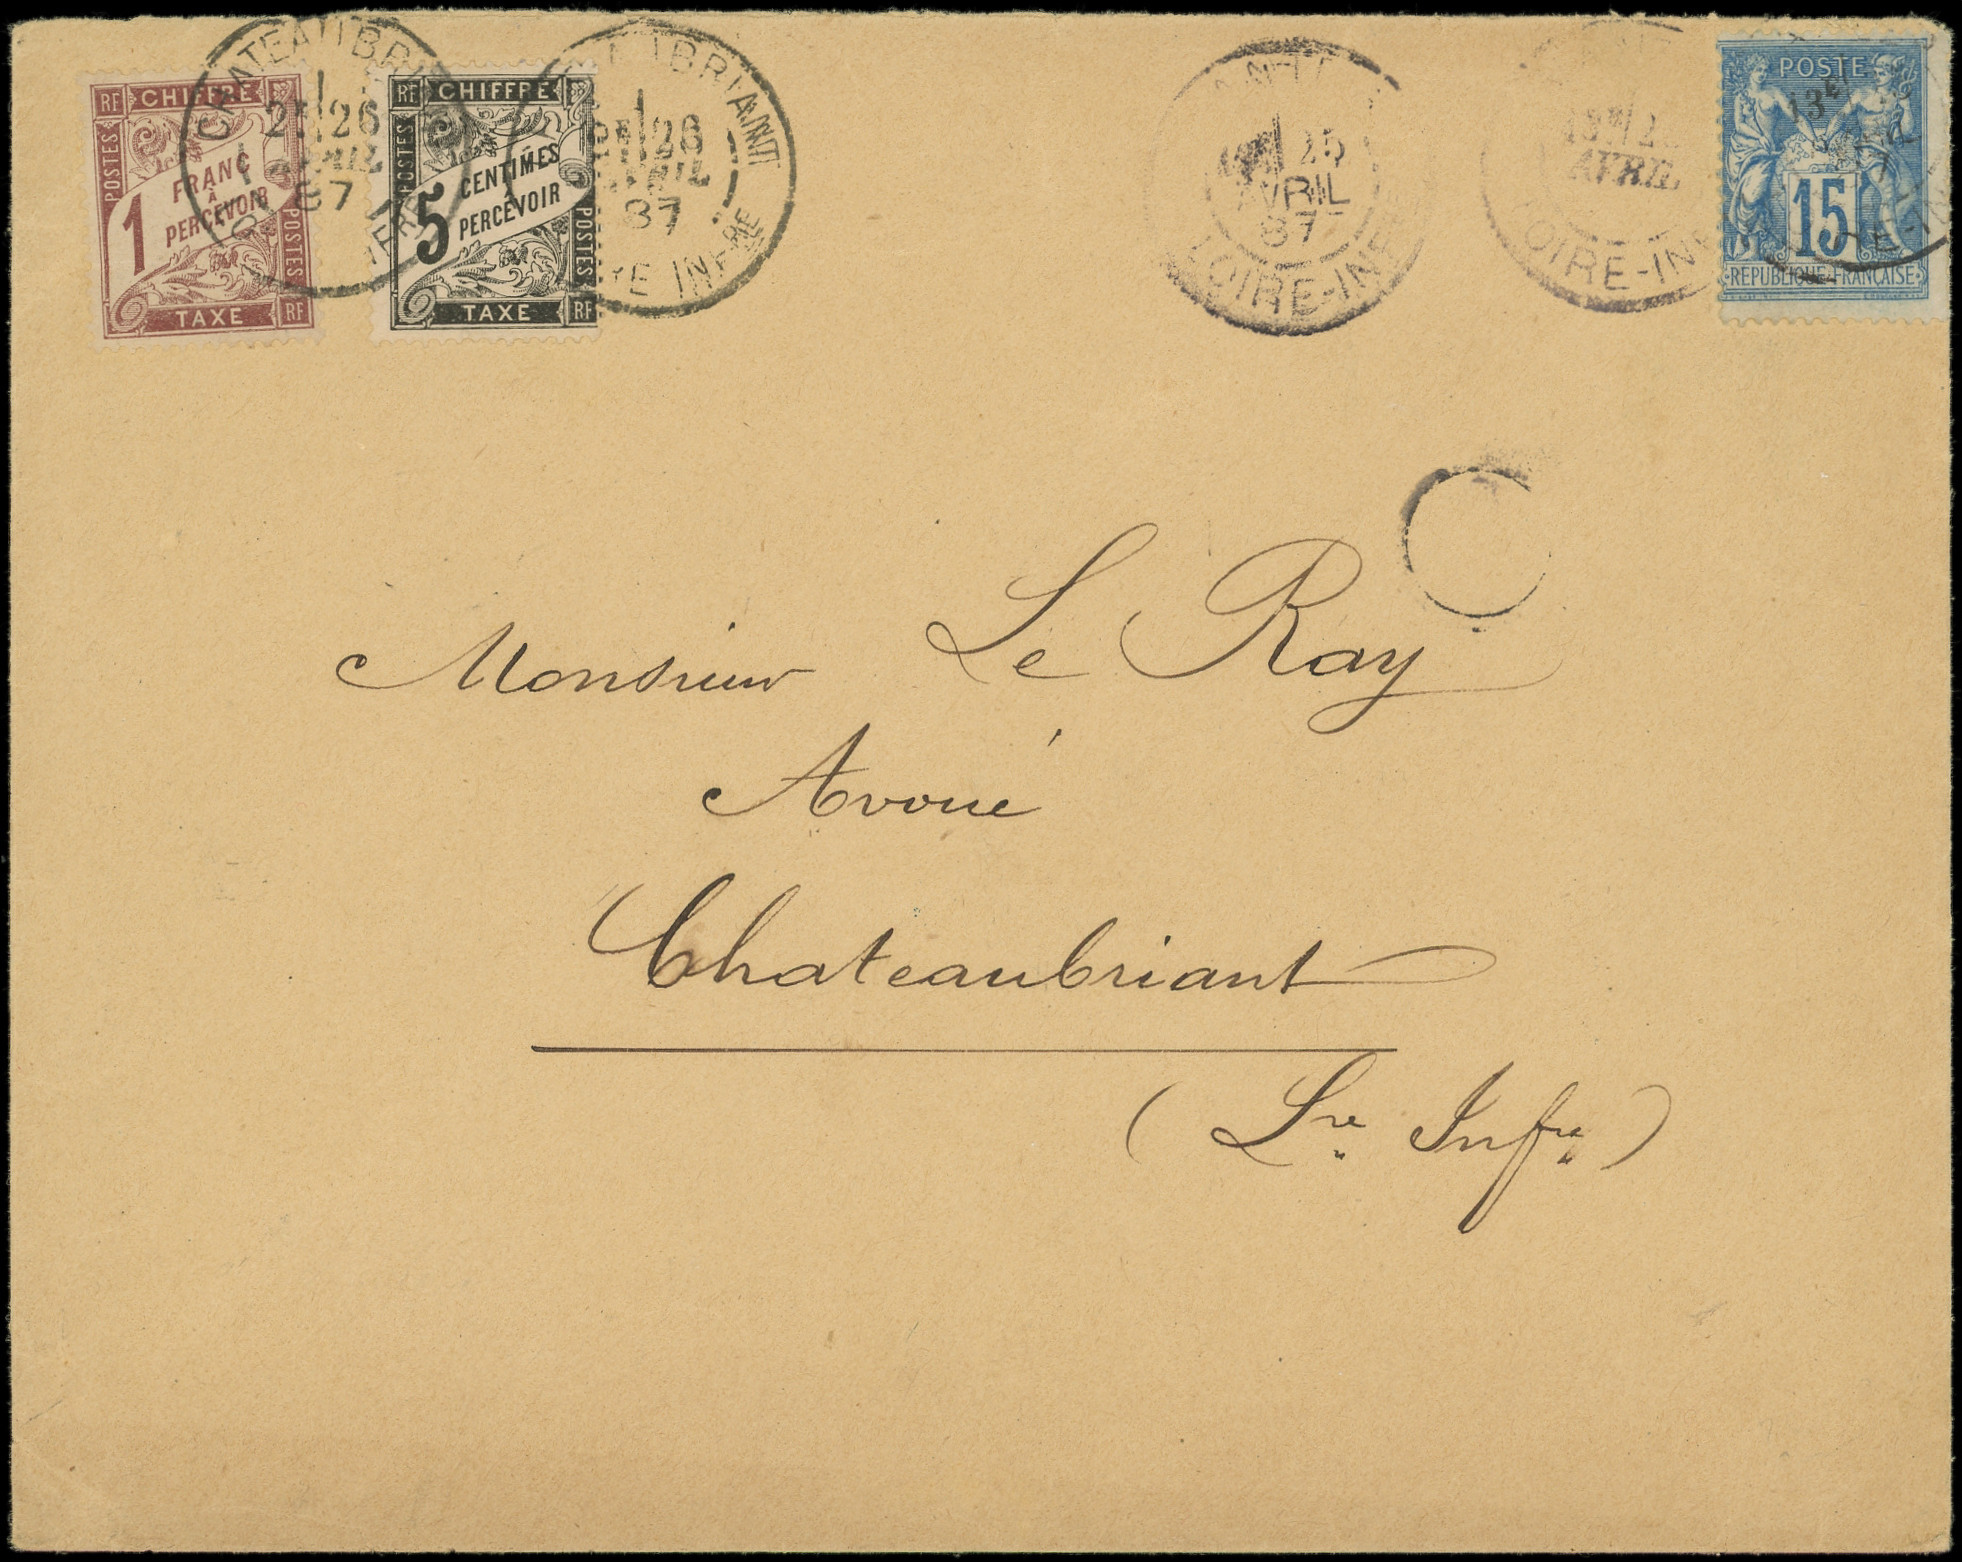 RF CHIFFRE
POSTES
1 FRANC
À
PERCEVOIR
POSTES
TAXE RF
CHATEAUBRI
26
AVRIL
87
RF CHIFFRE
POSTES
5 CENTIMES
PERCEVOIR
POSTES
TAXE RF
UBRIANT
26
AVRIL
87
INFRE
25
AVRIL
87
LOIRE-INF
AVRIL
LOIRE-INF
POSTE
15
REPUBLIQUE FRANÇAISE
Monsieur Le Ray
Avoué
Chateaubriant
(Lre Infre)